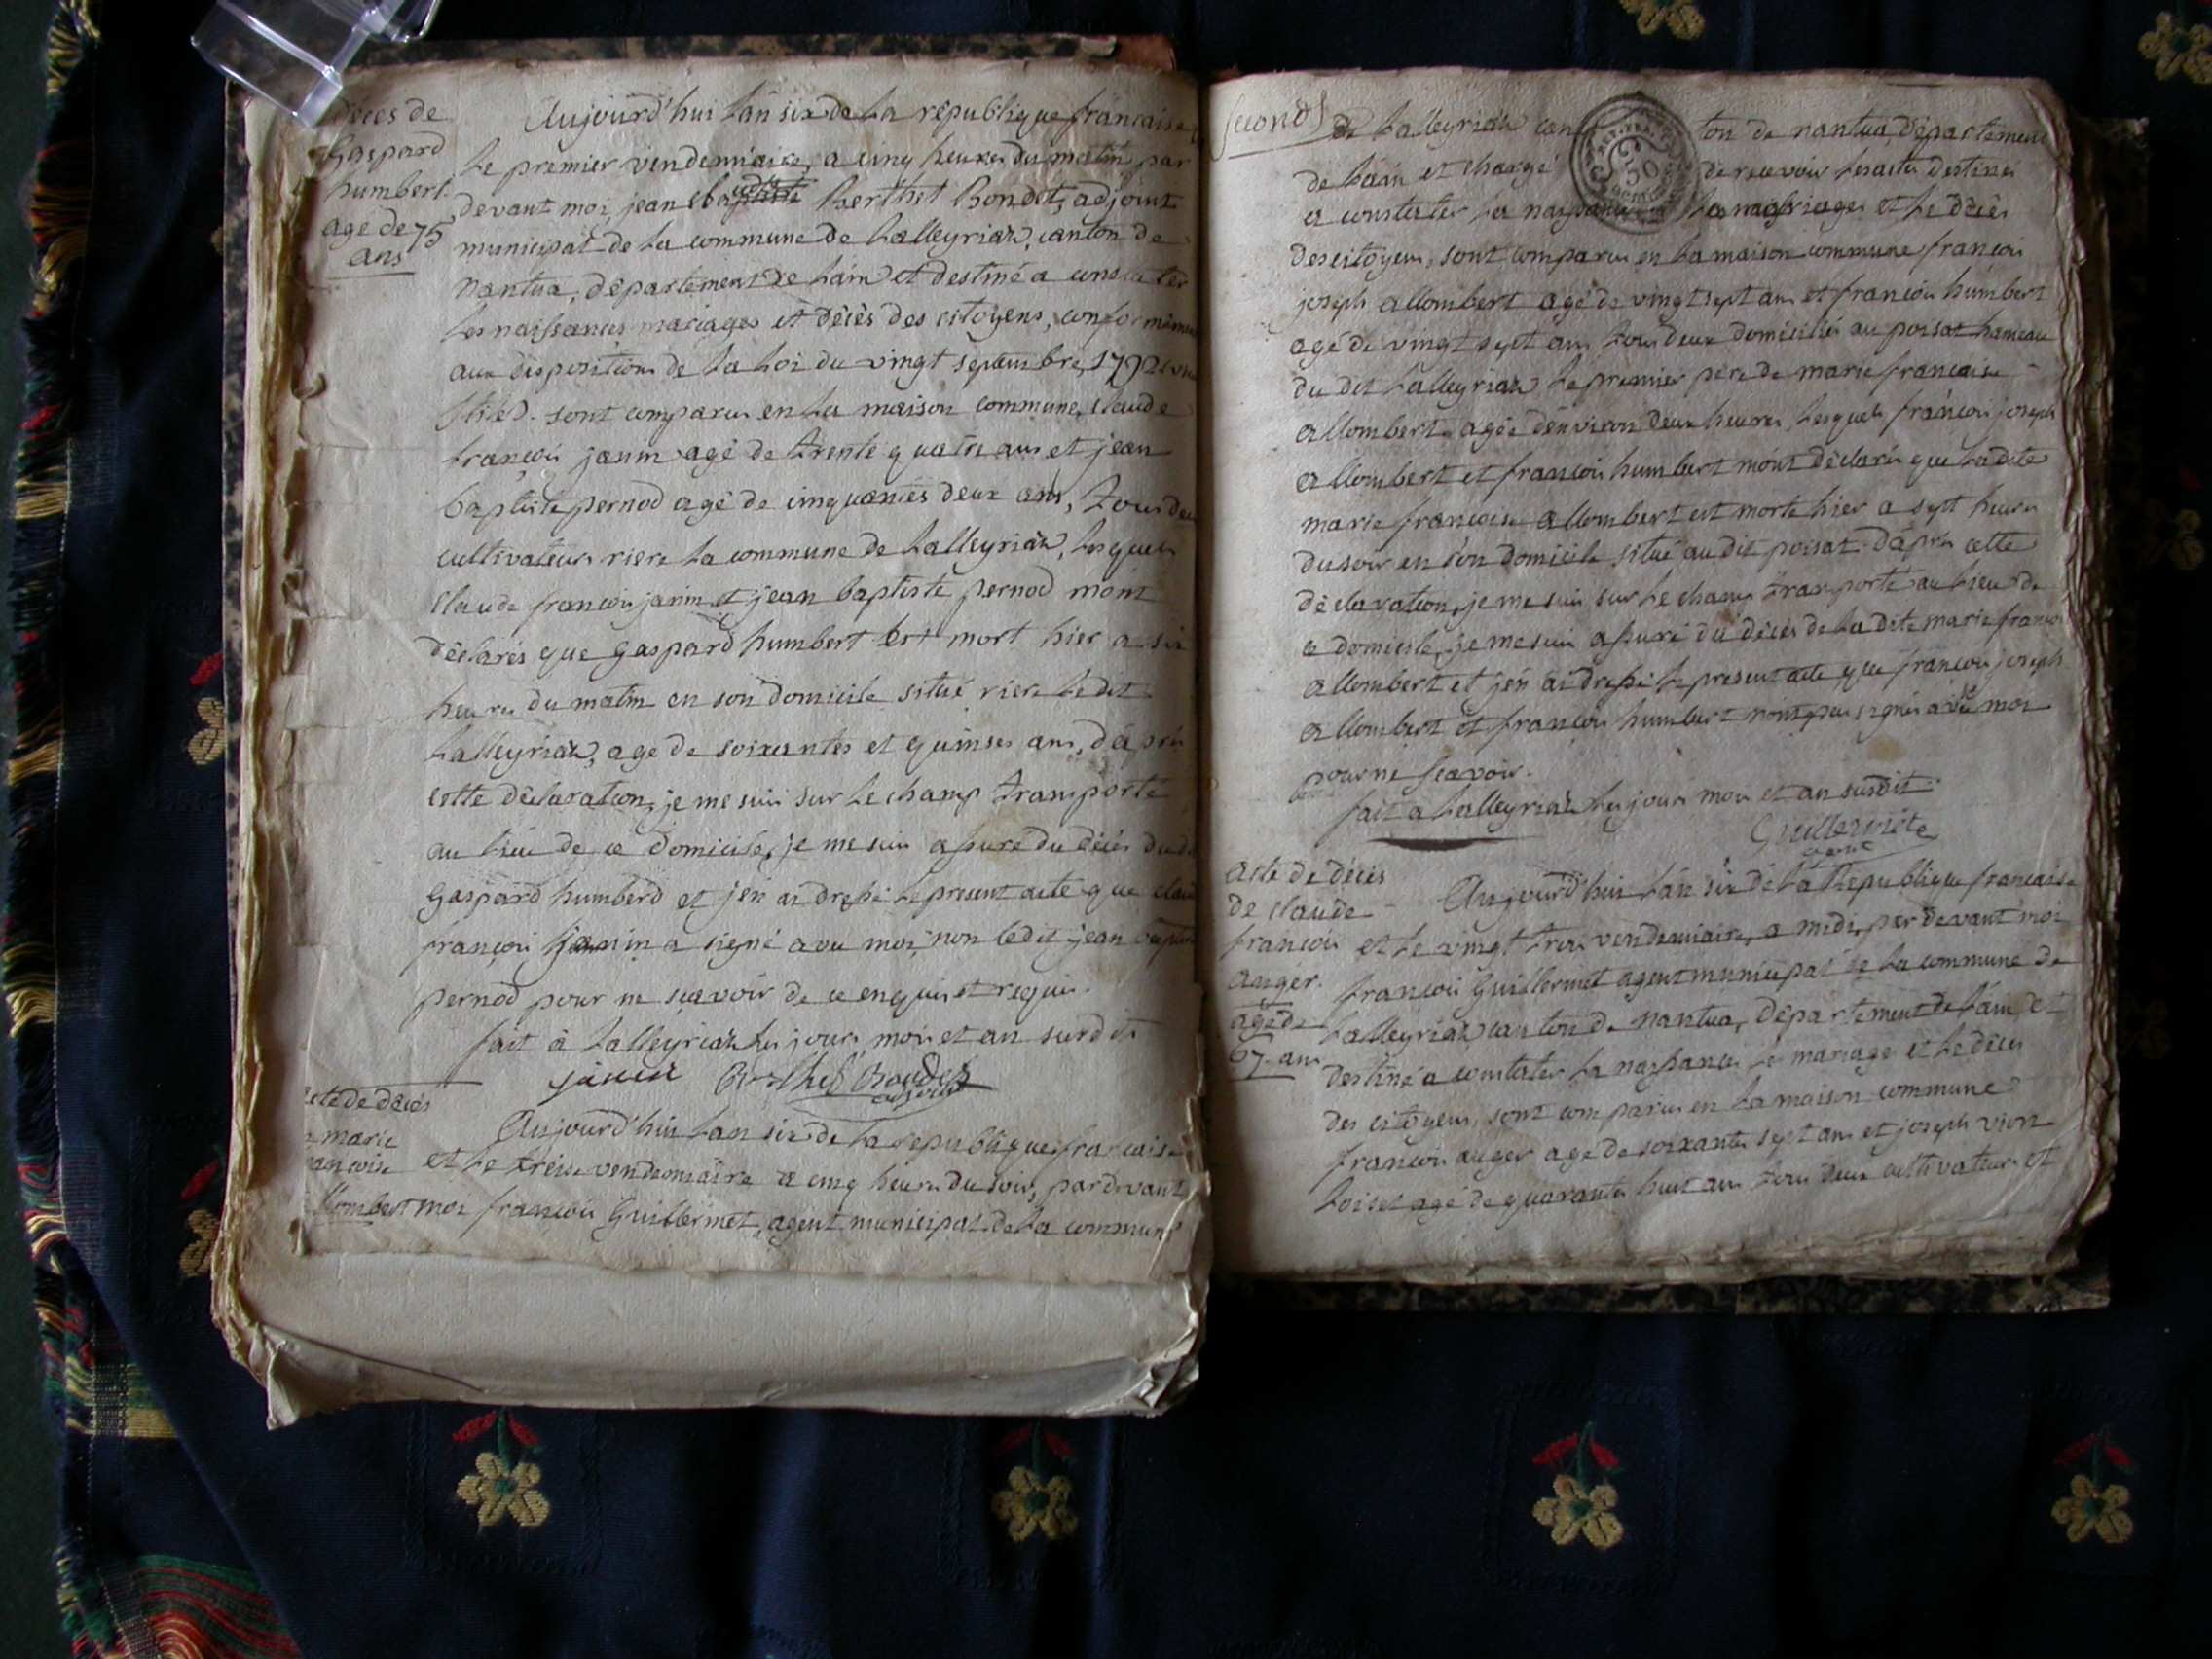 décès de
Gaspard
humbert.
agé de 75
ans
Aujourd'hui L'an six de La république francaise
Le premier vendemiaire, a cinq heures du matin par
devant moi, jean Berthet Bondet, adjoint
municipal de La commune de Lalleyriaz, canton de
Nantua, département de Lain et destiné a constater
Les naissances mariages et décès des citoyens, conformémen
aux dispositions de La Loi du vingt septembre 1792
stile). sont comparus en La maison commune, claude
françois janin agé de trente quatre ans et jean
baptiste pernod agé de cinquantes deux ans, tous deu
cultivateurs riere La commune de Lalleyriaz, Lesquels
Claude françois janin et jean baptiste pernod m'ont
déclarés que Gaspard humbert est mort hier a six
heures du matin en son domicile situé riere Le dit
Lalleyriaz, agé de soixantes et quinses ans, d'après
cette déclaration, je me suis sur Le champ transporté
au Lieu de ce domicile, je me suis assuré du décès du d
Gaspard humberd et j'en ai dressé Le present acte que clau
françois janin a signé avec moi, non ledit jean baptis
pernod pour ne sçavoir de ce enquis et requis.
fait à Lalleyriaz Les jours mois et an surdit
janin Berthet Bondet
adjoint
acte de décès
marie
ancoise
llombert
Aujourd'hui L'an six de La republique francaise
et Le treise vendemiaire a cinq heures du soir, pardevant
moi françois Guillermet, agent municipal de La commune
second
de Lalleyriaz canton de nantua, département
de L'ain et chargé de recevoir Les actes destinés
a constater La naissance Les mariages et Le décès
des citoyens, sont comparus en La maison commune françois
joseph allombert agé de vingt sept ans et françois humbert
agé de vingt sept ans tous deux domiciliés au poisat hameau
du dit Lalleyriaz Le premier père de marie francaise
allombert agée d'environ deux heures, Lesquels françois joseph
allombert et françois humbert m'ont déclarés que La dite
marie francoise allombert est morte hier a sept heures
du soir en son domicile situé au dit poisat. d'après cette
déclaration, je me suis sur Le champ transporté au Lieu de
ce domicile, je me suis assuré du décès de La dite marie françoi
allombert et j'en ai dressé Le present acte que françois joseph
allombert et françois humbert n'ont pas signés avec moi
pour ne sçavoir.
fait a Lalleyriaz Les jours mois et an susdit
Guillermet
agent
acte de décès
de claude
françois
auger.
agé de
67. ans
Aujourd'hui L'an six de La Republique francaise
et Le vingt trois vendemiaire, a midi, par devant moi
francois Guillermet agent municipal de La commune de
Lalleyriaz canton de nantua, département de L'ain et
destiné a constater La naissance Le mariage et Le décès
des citoyens, sont comparus en La maison commune
francois auger agé de soixantes sept ans et joseph vion
Loiset agé de quarantes huit ans tous deux cultivateurs et